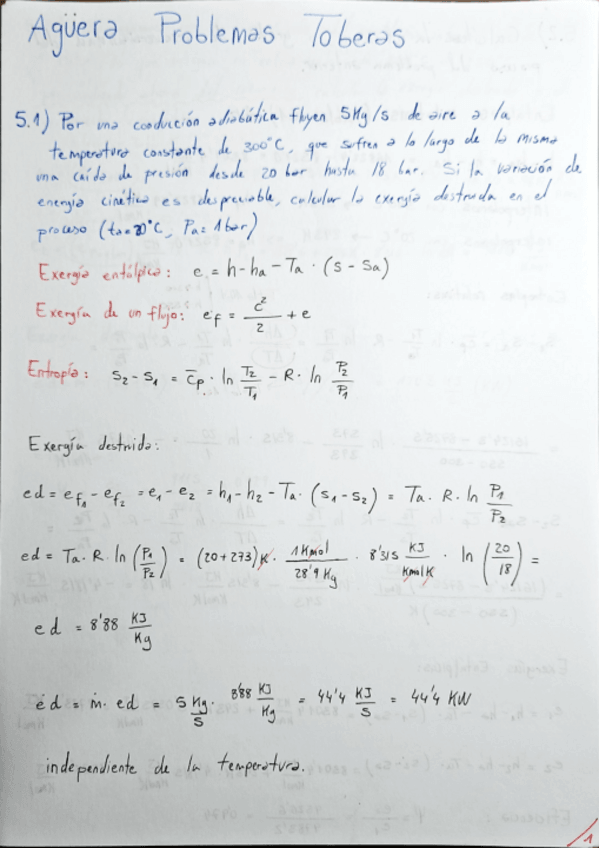 Agüera Problemas Toberas
5.1) Por una conducción adiabática fluyen 5Kg/s de aire a la
temperatura constante de 300°C, que sufren a lo largo de la misma
una caída de presión desde 20 bar hasta 18 bar. Si la variación de
energía cinética es despreciable, calcular la exergía destruida en el
proceso (ta=20°C, Pa=1bar)
Exergía entálpica: e = h-ha-Ta·(s-Sa)
Exergía de un flujo: ef = c²/2 + e
Entropía: S2-S1 = C̄p · ln T2/T1 - R · ln P2/P1
Exergía destruida:
ed = ef1 - ef2 = e1 - e2 = h1-h2-Ta·(s1-s2) = Ta·R·ln P1/P2
ed = Ta·R·ln(P1/P2) = (20+273)K · 1Kmol/28'9Kg · 8'315 KJ/KmolK · ln(20/18) =
ed = 8'88 KJ/Kg
ėd = ṁ·ed = 5 Kg/s · 8'88 KJ/Kg = 44'4 KJ/s = 44'4 KW
independiente de la temperatura.
1